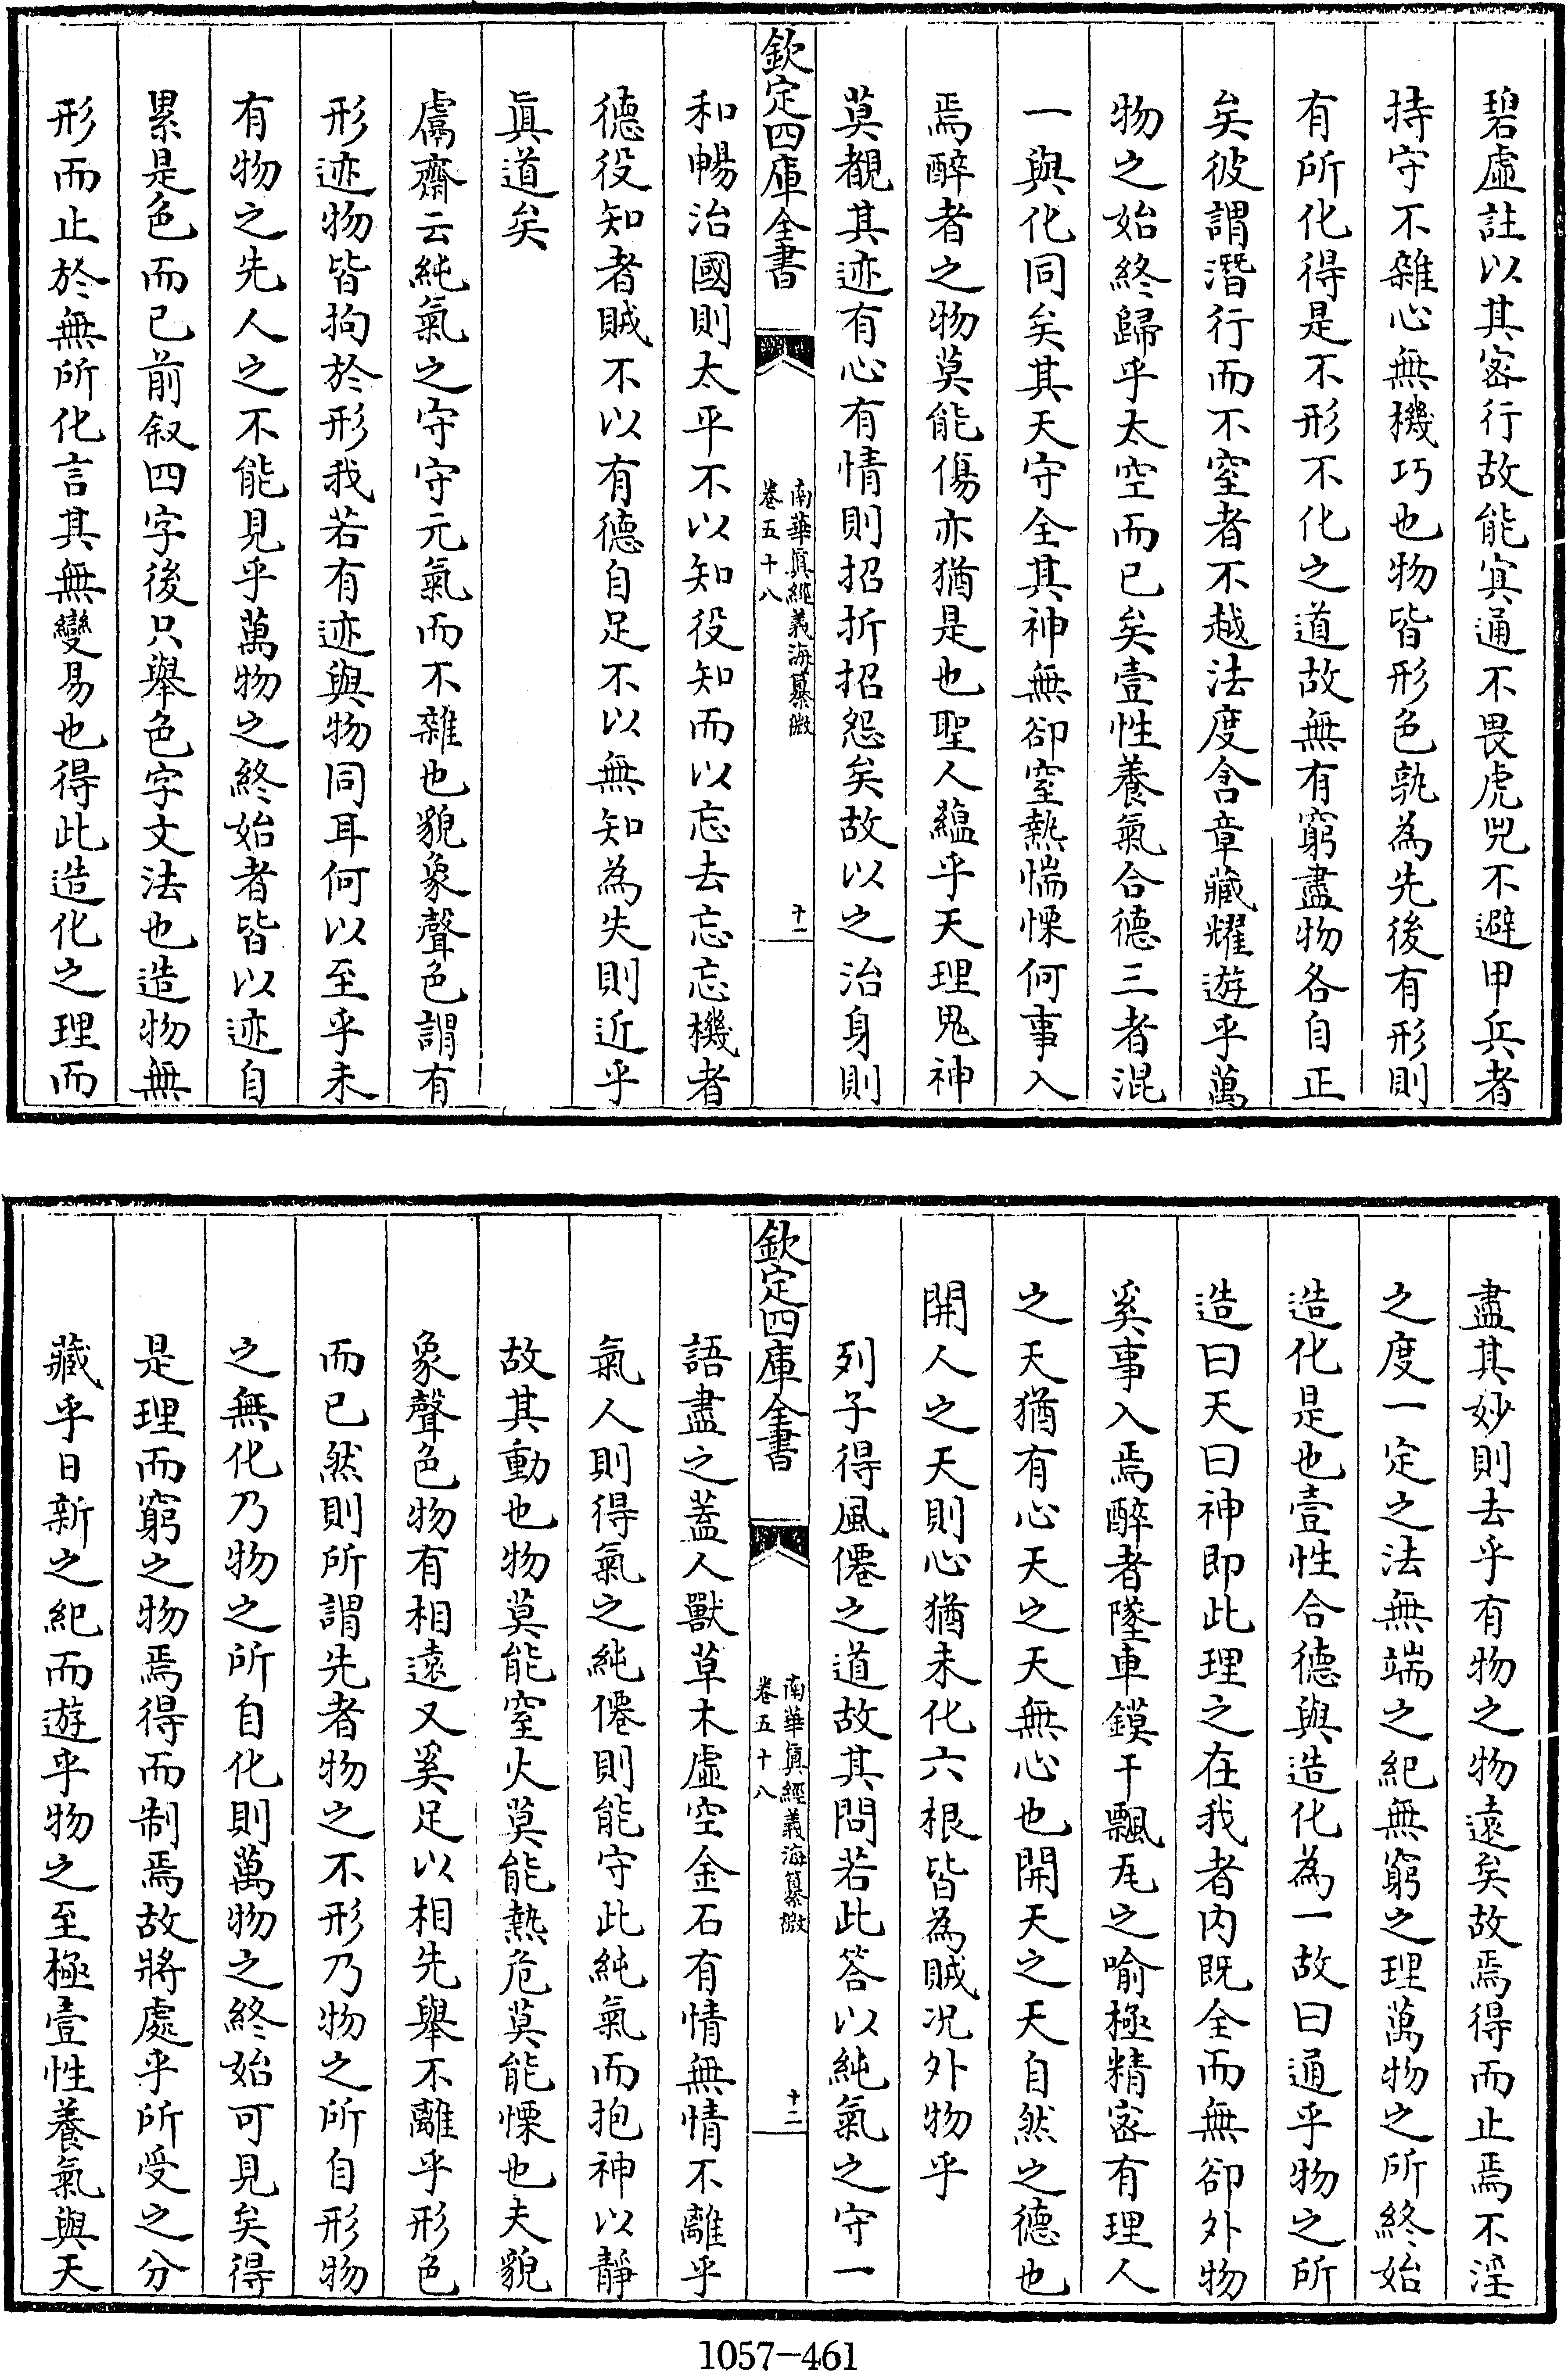 碧虛註以其密行故能㝠通不畏虎兕不避甲兵者
持守不雜心無機巧也物皆形色孰為先後有形則
有所化得是不形不化之道故無有窮盡物各自正
矣彼謂潛行而不窒者不越法度含章藏耀遊乎萬
物之始終歸乎太空而已矣壹性養氣合德三者混
一與化同矣其天守全其神無卻窒熱惴慄何事入
焉醉者之物莫能傷亦猶是也聖人藴乎天理鬼神
莫覩其迹有心有情則招折招怨矣故以之治身則
欽定四庫全書
南華真經義海纂微
卷五十八
十一
和暢治國則太平不以知役知而以忘去忘忘機者
德役知者賊不以有德自足不以無知為失則近乎
眞道矣
鬳齋云純氣之守守元氣而不雜也貌象聲色謂有
形迹物皆拘於形我若有迹與物同耳何以至乎未
有物之先人之不能見乎萬物之終始者皆以迹自
累是色而已前叙四字後只舉色字文法也造物無
形而止於無所化言其無變易也得此造化之理而
盡其妙則去乎有物之物遠矣故焉得而止焉不淫
之度一定之法無端之紀無窮之理萬物之所終始
造化是也壹性合德與造化為一故曰通乎物之所
造曰天曰神即此理之在我者内既全而無卻外物
奚事入焉醉者墜車鏌干飄瓦之喻極精密有理人
之天猶有心天之天無心也開天之天自然之德也
開人之天則心猶未化六根皆為賊况外物乎
列子得風僊之道故其問若此答以純氣之守一
欽定四庫全書
南華真經義海纂微
卷五十八
十二
語盡之蓋人獸草木虛空金石有情無情不離乎
氣人則得氣之純僊則能守此純氣而抱神以靜
故其動也物莫能窒火莫能熱危莫能慄也夫貌
象聲色物有相遠又奚足以相先舉不離乎形色
而已然則所謂先者物之不形乃物之所自形物
之無化乃物之所自化則萬物之終始可見矣得
是理而窮之物焉得而制焉故將處乎所受之分
藏乎日新之紀而遊乎物之至極壹性養氣與天
1057-461